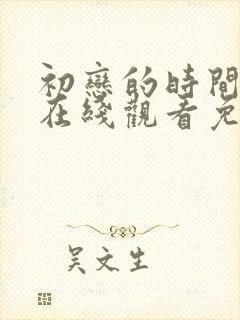 初戀的時間
在綫觀看免
吳文生